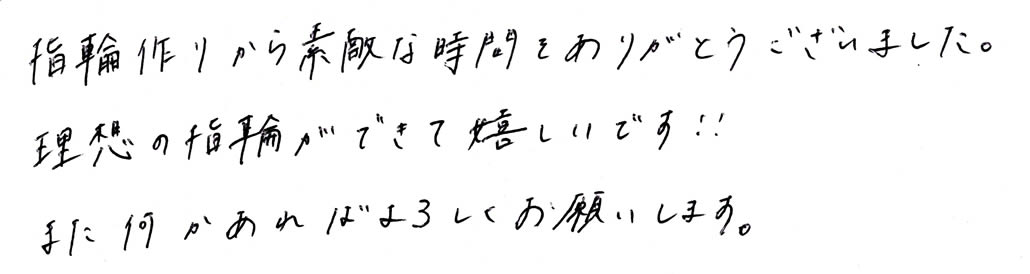 指輪作りから素敵な時間をありがとうございました。
理想の指輪ができて嬉しいです!!
また何かあればよろしくお願いします。